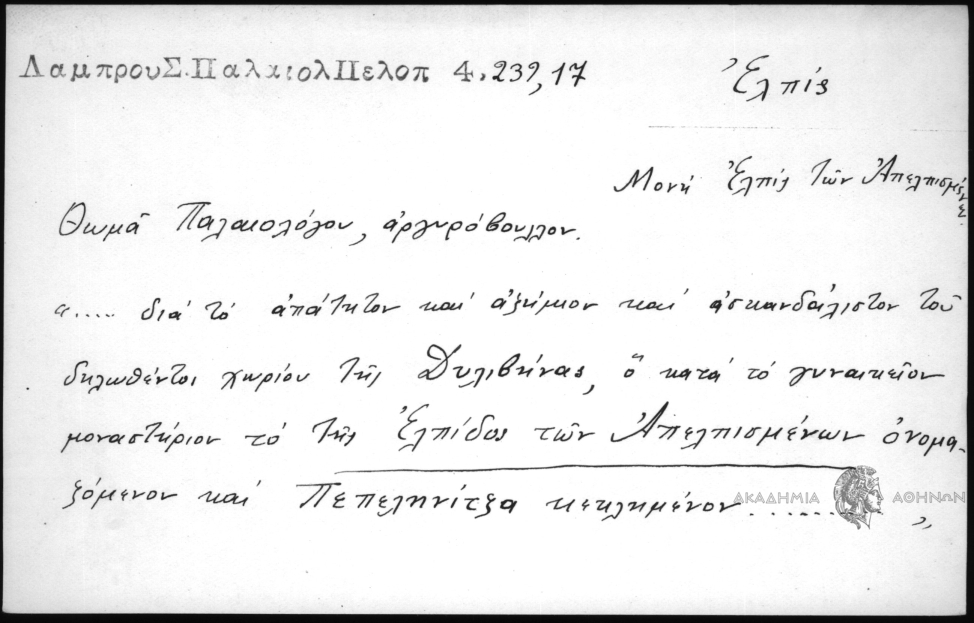 Λαμπρου Σ. Παλαιολ Πελοπ 4. 239, 17
Ἐλπίς
Μονή Ἐλπὶς τῶν Ἀπελπισμένων.
Θωμᾶ Παλαιολόγου, ἀργυρόβουλλον.
"..... διά τό ἀπάτητον καί ἀζήμιον καί ἀσκανδάλιστον τοῦ
δηλωθέντος χωρίου τῆς Δυλιβήνας, ὅ κατά τό γυναικεῖον
μοναστήριον τό τῆς Ἐλπίδος τῶν Ἀπελπισμένων ὀνομα-
ζόμενον καί Πεπεληνίτζα κεκλημένον ........ "
ΑΚΑΔΗΜΙΑ ΑΘΗΝΩΝ